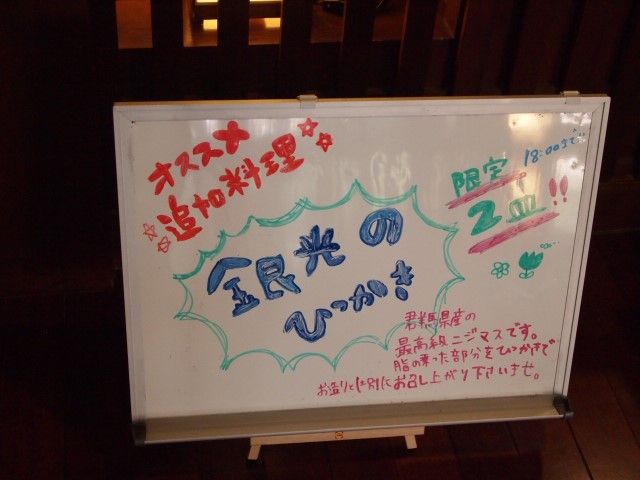 オススメ
追加料理
限定
2皿!!
18:00まで
銀光の
ひっかき
群馬県産の
最高級ニジマスです。
脂の乗った部分をひっかきで
お造りとは別にお召し上がり下さいませ。